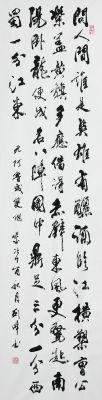 問人間誰是英雄有釃酒臨江橫槊曹公
紫蓋黃旗多應借得赤壁東風更驚起南
陽臥龍便成名八陣圖中鼎足三分一分西
蜀一分江東
元阿魯威